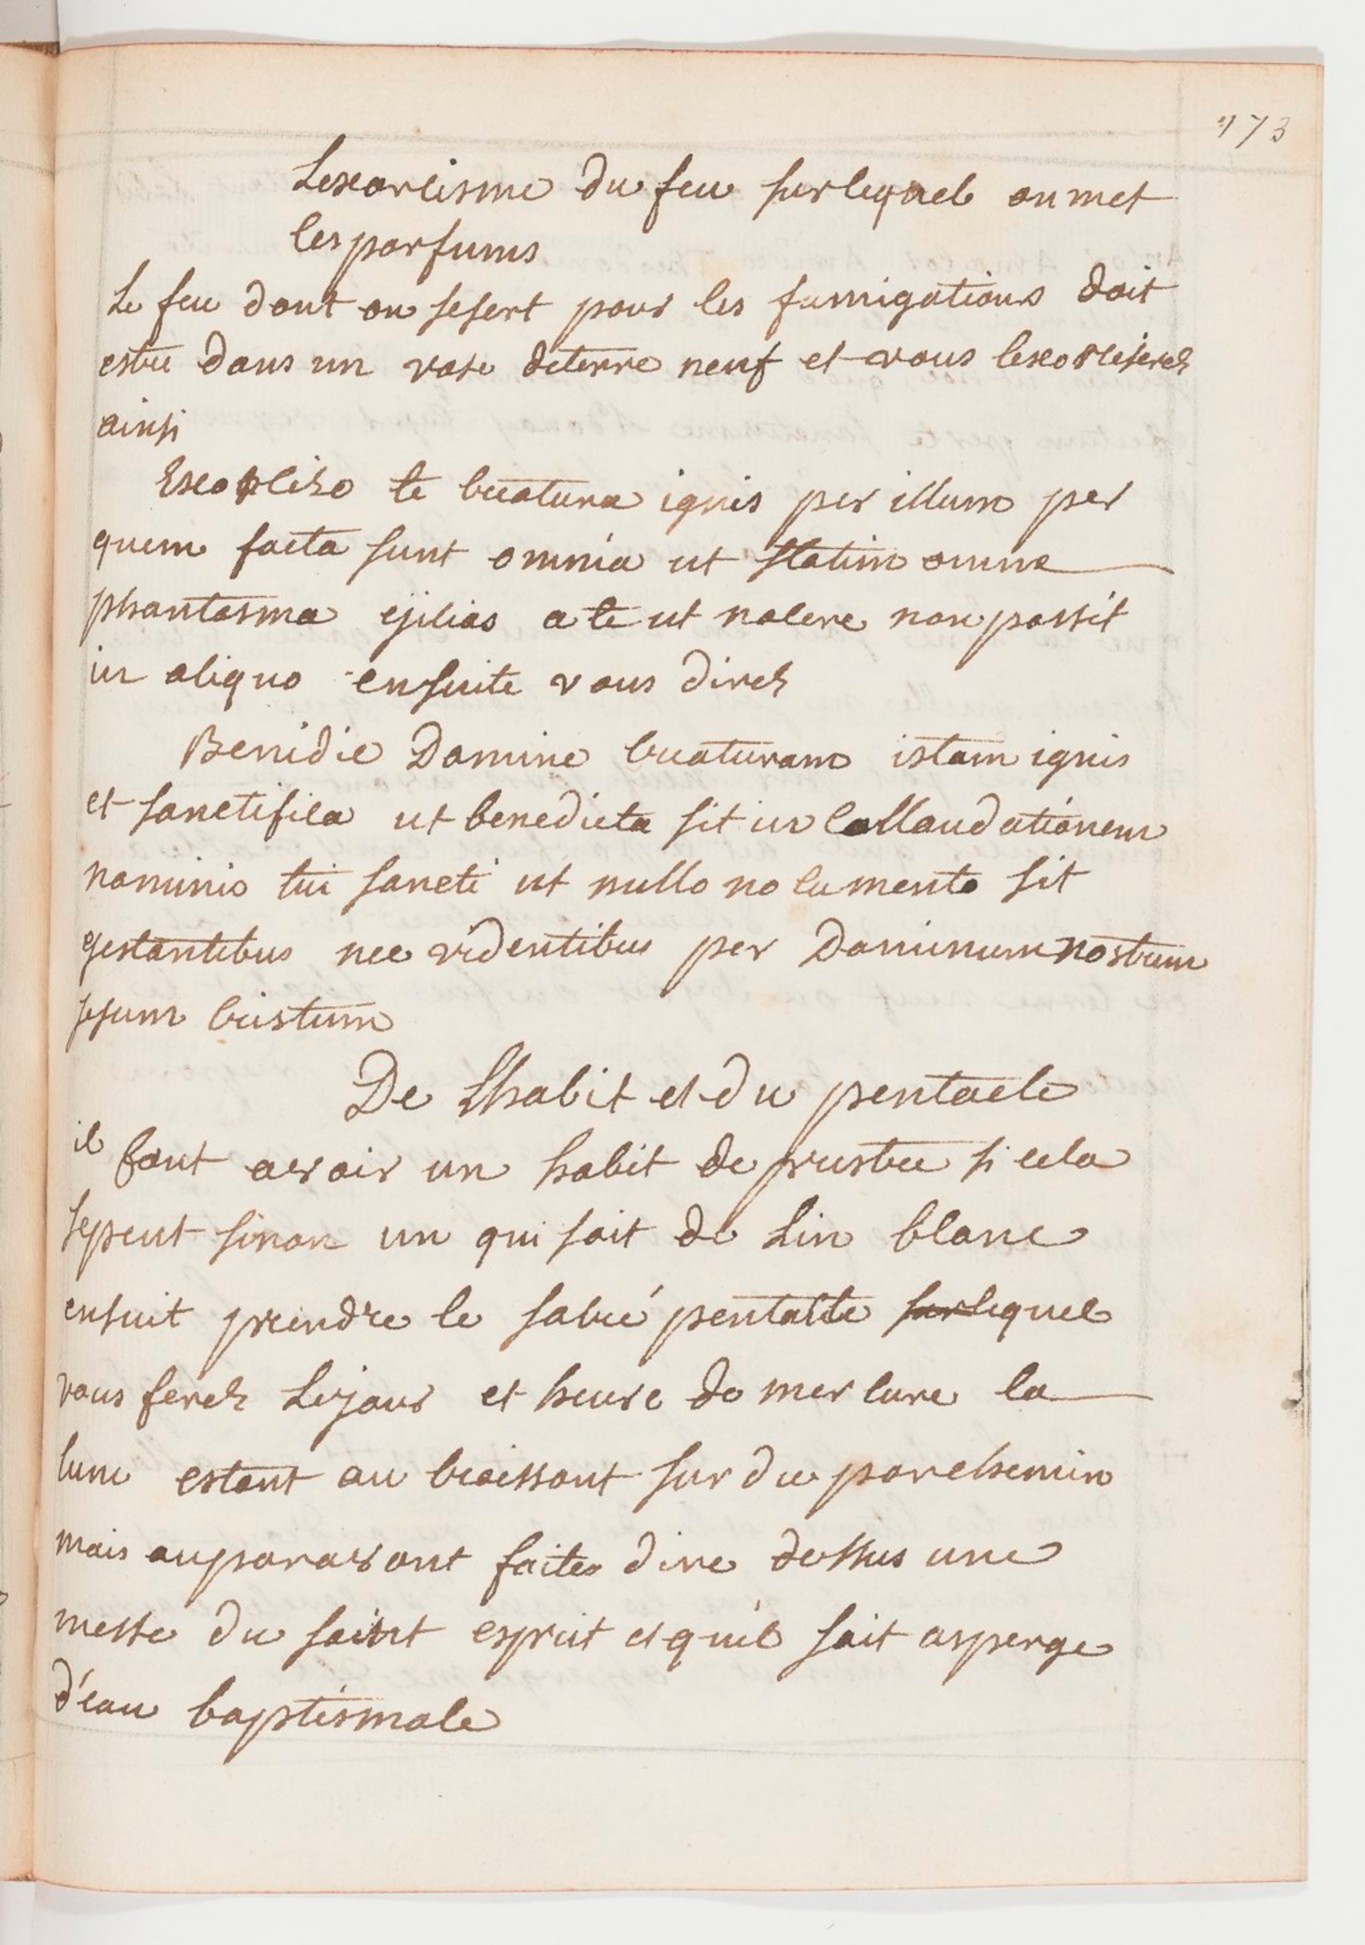 173
Lexorcisme du feu sur lequel on met
les parfums
Le feu dont on se sert pour les fumigations doit
estre dans un vase de terre neuf et vous lexorciserez
ainsi
Exorcizo te creatura ignis per illum per
quem facta sunt omnia ut statim omne
phantasma ejicias a te ut nocere non possit
in aliquo ensuite vous direz
Benidic Domine creaturam istam ignis
et sanctifica ut benedicta sit in collaudationem
nominis tui sancti ut nullo nocumento sit
gestantibus nec videntibus per Dominum nostrum
Jesum cristum
De Lhabit et du pentacle
il faut avoir un habit de prestre si cela
se peut sinon un qui soit de Lin blanc
ensuit preindre le sacré pentacle sur lequel
vous ferez Le jour et heure de mercure la
lune estant au croissant sur du parchemin
mais auparavant faites dire dessus une
messe du saint esprit et qu'il soit asperge
d'eau baptismale